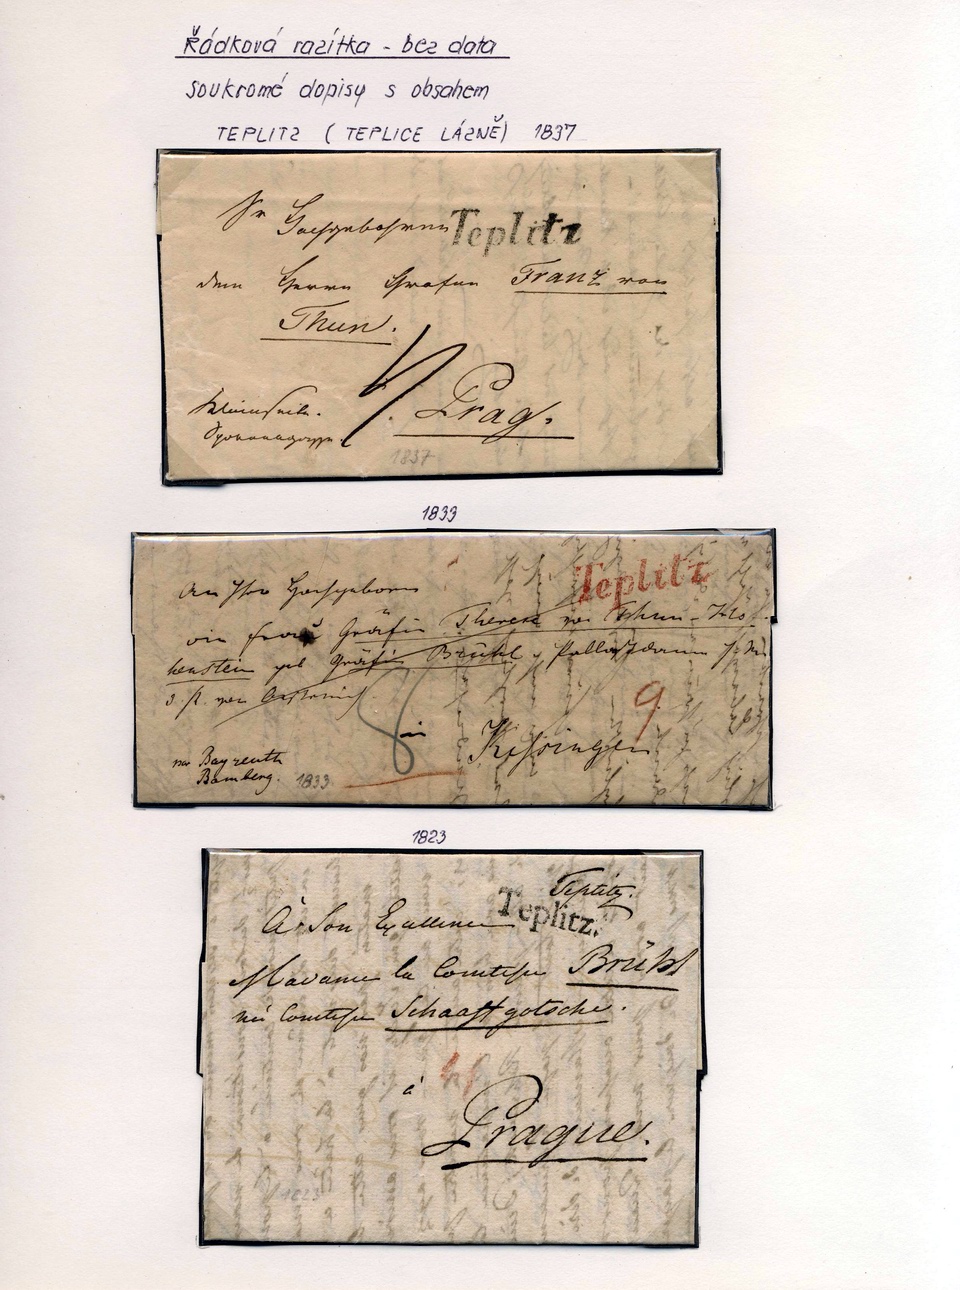 Řádková razítka - bez data
soukromé dopisy s obsahem
TEPLITZ (TEPLICE LÁZNĚ) 1837
Sr Hochgebohren Teplitz
dem Herrn Grafen Franz von
Thun.
Prag.
1837
1833
Teplitz
An Ihro Hochgeboren
die Frau Gräfin Therese von Thun-Ho
henstein geb Gräfin Brühl
8 in 9
Kissingen
über Bayreuth
Bamberg. 1833
1823
Teplitz.
Teplitz.
À Son Excellence
Madame la Comtesse Brühl
née Comtesse Schaaffgotsche.
à
Prague.
1823